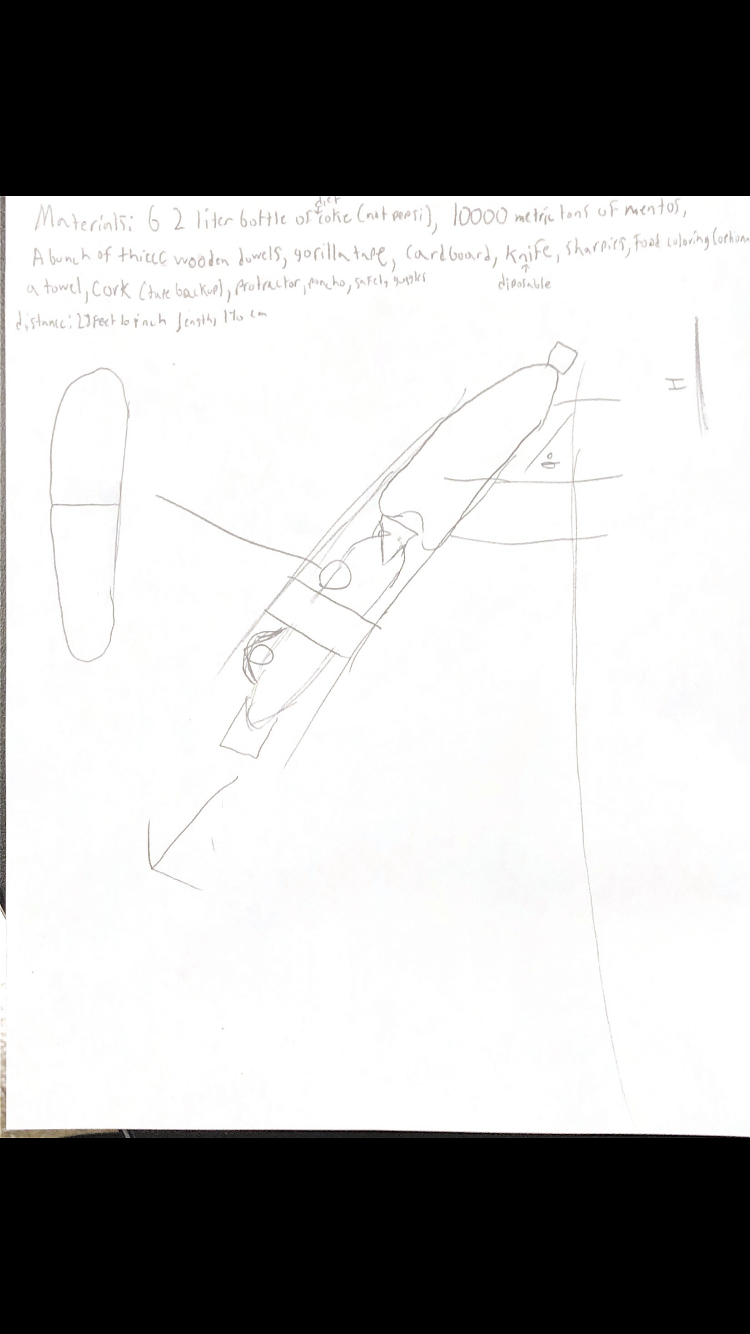 Materials: 6 2 liter bottle of diet coke (not pepsi), 10000 metric tons of mentos,
A bunch of thiccc wooden dowels, gorilla tape, cardboard, knife, sharpies, Food coloring (optiona
disposable
a towel, cork (tape backup), protractor, poncho, safety goggles
distance: 2 feet 10 inch length, 170 cm